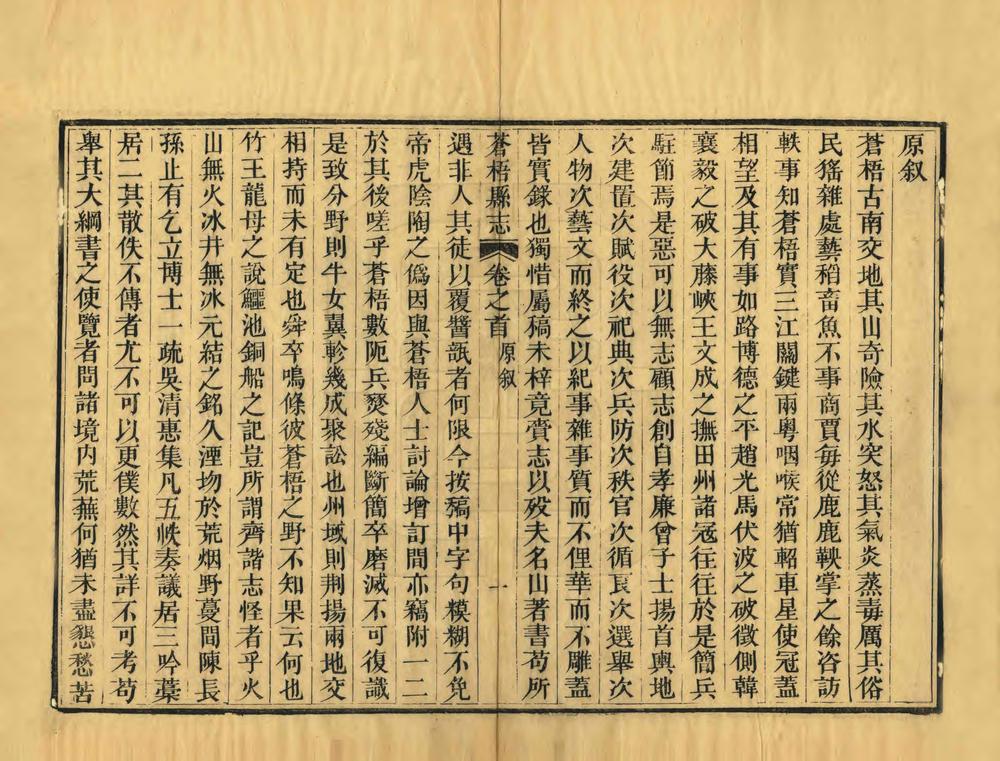 原叙
蒼梧古南交地其山奇險其水突怒其氣炎蒸毒厲其俗
民猺雜處藝稻畜魚不事商賈毎從鹿鹿鞅掌之餘咨訪
軼事知蒼梧實三江關鍵兩粤咽喉常猶軺車星使冠蓋
相望及其有事如路博德之平趙光馬伏波之破徵側韓
襄毅之破大藤峽王文成之撫田州諸冦往往於是簡兵
駐節焉是惡可以無志顧志創自孝廉曾子士揚首輿地
次建置次賦役次祀典次兵防次秩官次循良次選舉次
人物次藝文而終之以紀事雜事質而不俚華而不雕蓋
皆實錄也獨惜屬稿未梓竟賫志以殁夫名山著書苟所
蒼梧縣志 卷之首 原叙 一
遇非人其徒以覆醬瓿者何限今按稿中字句糢糊不免
帝虎陰陶之僞因與蒼梧人士討論增訂間亦竊附一二
於其後嗟乎蒼梧數阨兵燹殘編斷簡卒磨滅不可復識
是致分野則牛女翼軫幾成聚訟也州域則荆揚兩地交
相持而未有定也舜卒鳴條彼蒼梧之野不知果云何也
竹王龍母之說鱷池銅船之記豈所謂齊諧志怪者乎火
山無火冰井無冰元結之銘久湮圽於荒烟野蔓間陳長
孫止有乞立博士一疏吳清惠集凡五帙奏議居三吟藁
居二其散佚不傳者尤不可以更僕數然其詳不可考苟
舉其大綱書之使覽者問諸境内荒蕪何猶未盡懇愁苦